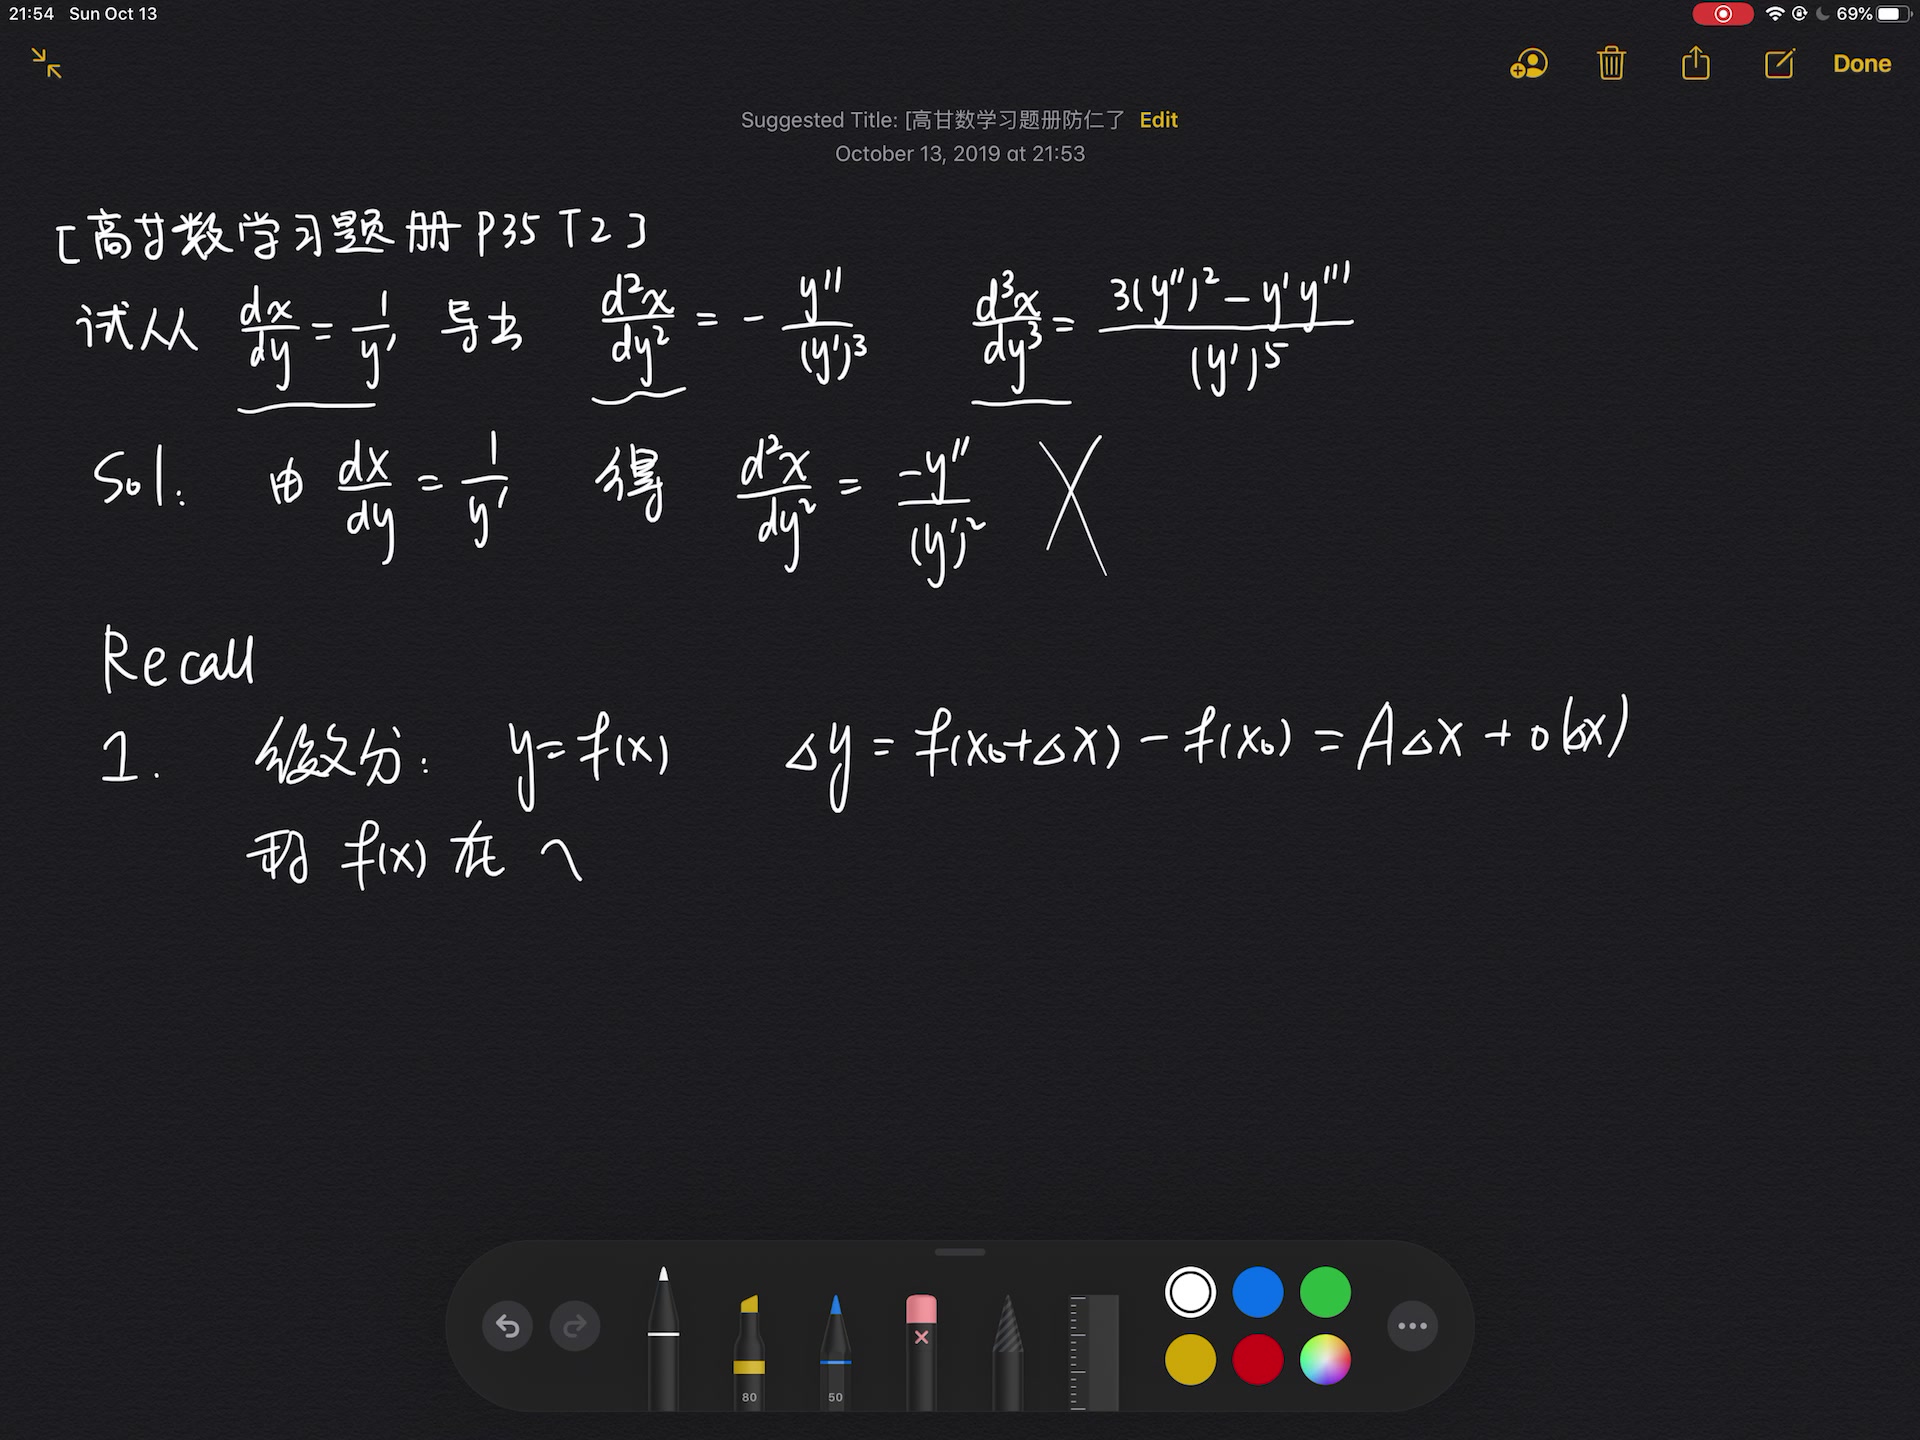 21:54 Sun Oct 13
69%
Done
Suggested Title: [高甘数学习题册防仁了 Edit
October 13, 2019 at 21:53
[高甘数学习题册 P35 T2]
试从 dx/dy = 1/y' 导出 d²x/dy² = - y''/(y')³ d³x/dy³ = 3(y'')² - y'y'''/(y')⁵
Sol: 由 dx/dy = 1/y' 得 d²x/dy² = -y''/(y')² X
Recall
1. 微分: y=f(x) Δy = f(x₀+Δx) - f(x₀) = AΔx + o(Δx)
f(x) 在
80 50